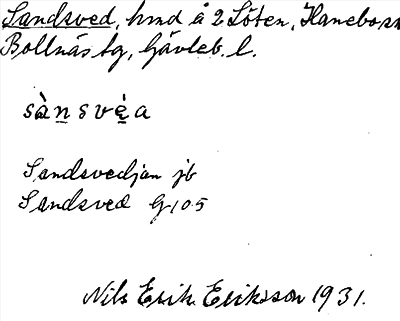 Sandsved, hmd å 2 Löten, Hanebo sn
Bollnäs tg, Gävleb. l.
sànsvéa
Sandsvedjan jb
Sandsved G 105
Nils Erik Eriksson 1931.